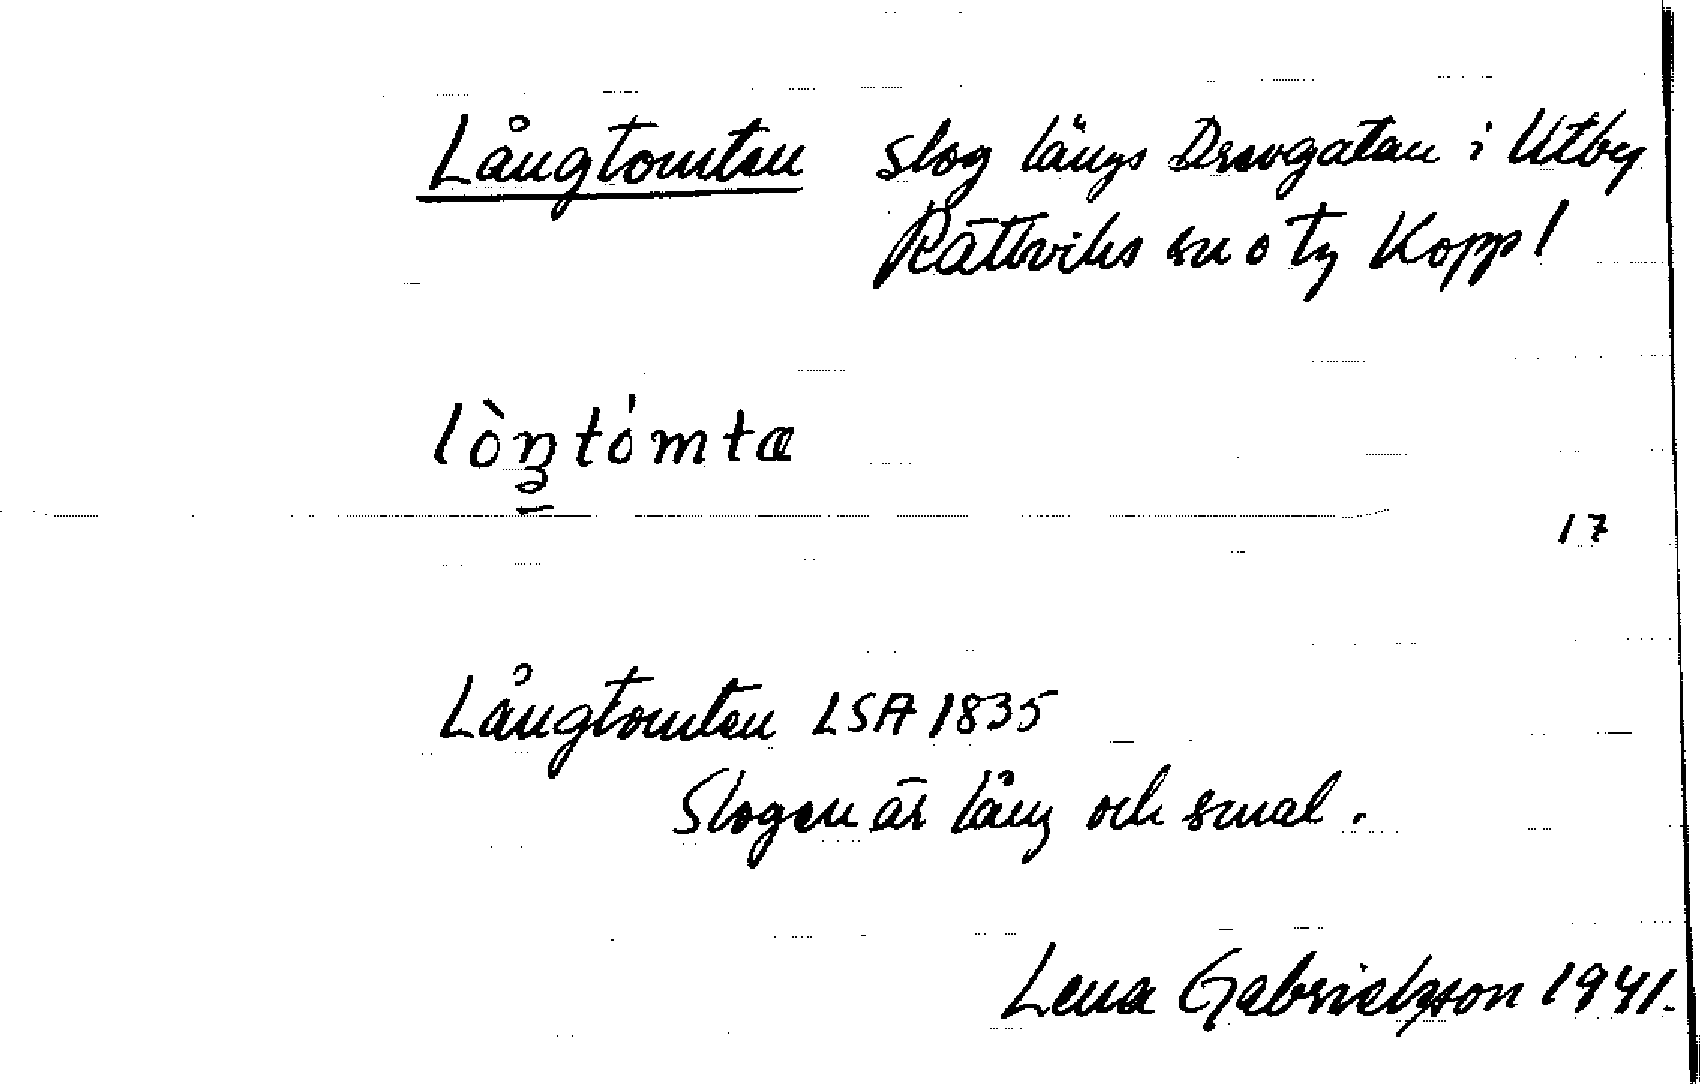 Långtomten slog längs Dravgatan i Utby
Rättviks sn o tg Kopp l
lòŋtómta
17
Långtomten LSA 1835
Slogen är lång och smal.
Lena Gabrielsson 1941.